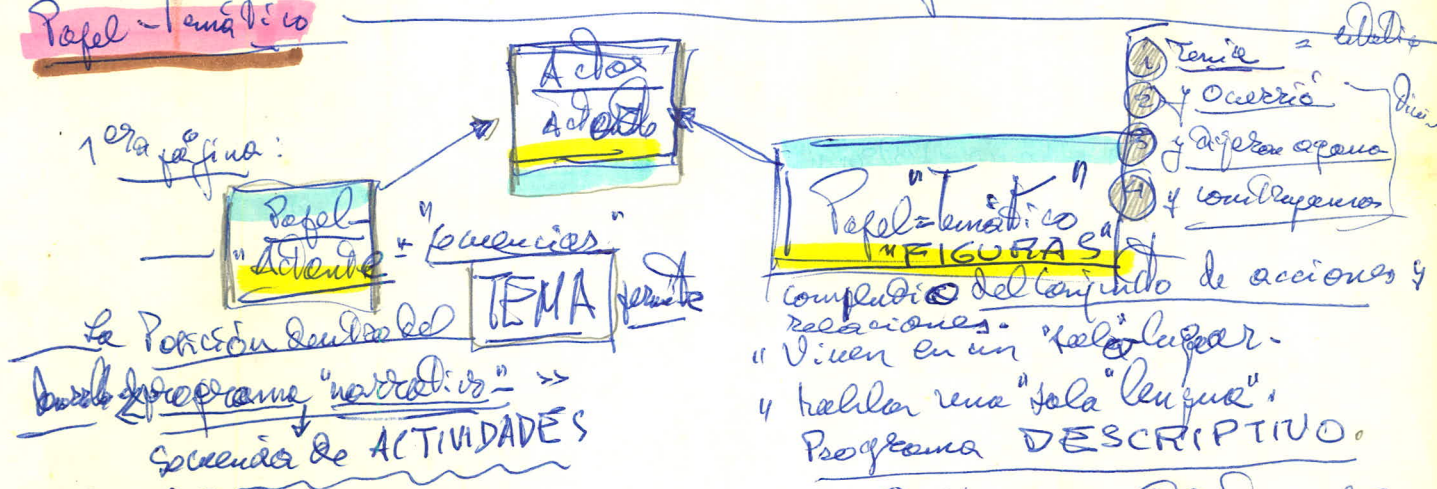 Papel-Temático
Actor
1era página:
Papel-
"Actante"
"secuencias"
TEMA permite
La Posición dentro del
programa "narrativo"
Secuencia de ACTIVIDADES
Papel-"Temático"
"FIGURAS"
compendio del conjunto de acciones y
relaciones.
"Viven en un "solo" lugar.
y hablan una "sola" lengua".
Programa DESCRIPTIVO.
1 Tenía =
2 y Ocurrió
3 y dijeron
4 y construyamos